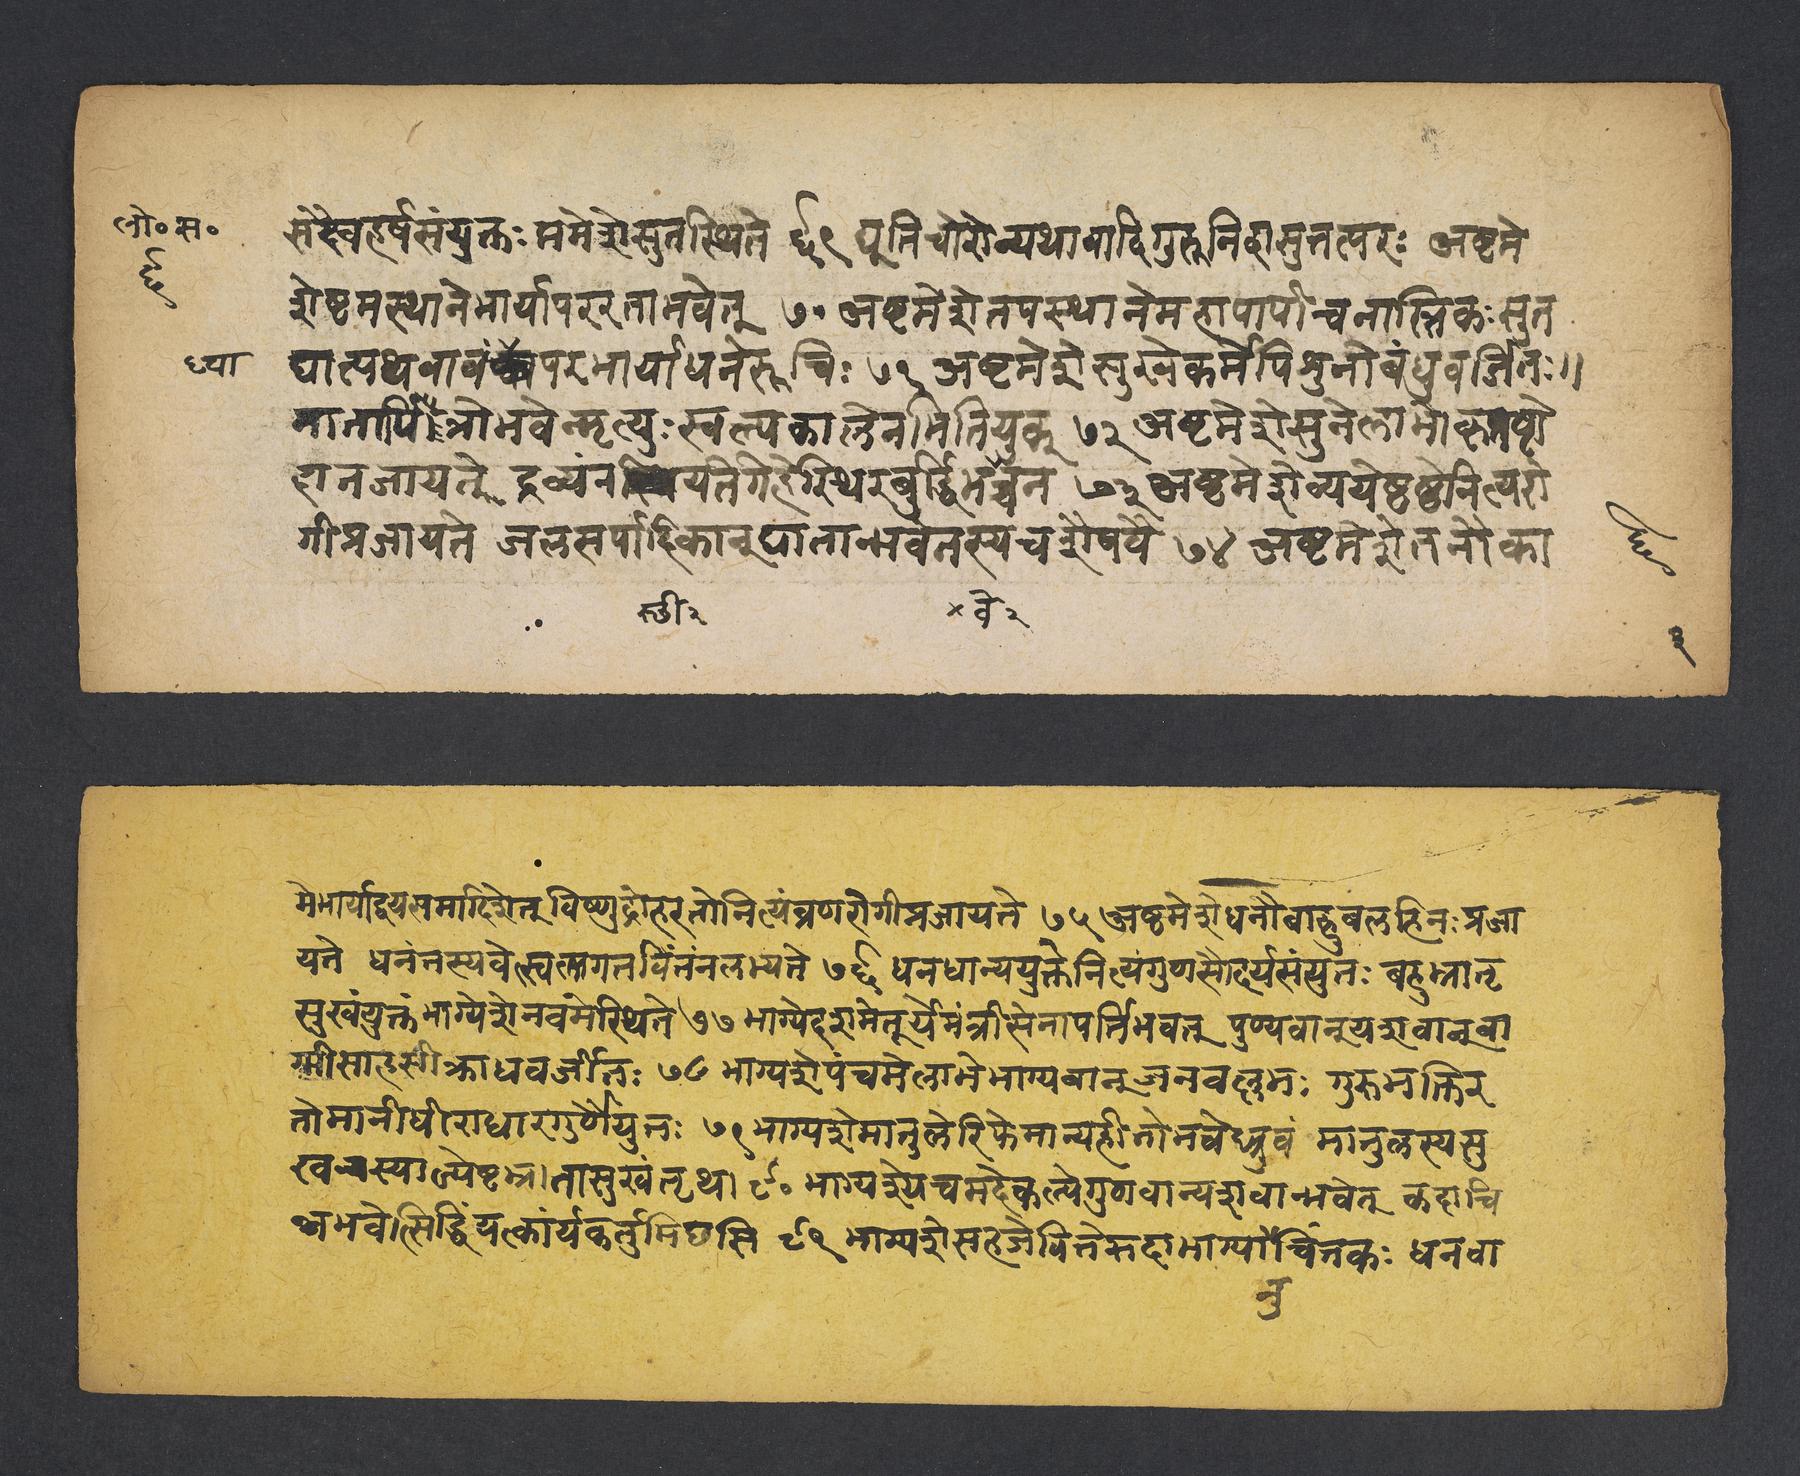 लो॰स॰
६
सेदैवहर्षसंयुक्तः ममेशेसुतस्थिते ६९ द्यूतिचोरोन्यथावादिगुरूनिंदासुतत्परः अष्टमे
शेष्टमस्थानेभार्यापररताभवेत् ७० अष्टमेशेतपस्थानेमहापापीचनास्तिकः सुत
ध्या
द्यात्यथवावं परभार्याधनेरूचिः ७१ अष्टमेशेसुखेकर्मेपिशुनोबंधुवर्जितः॥
मातापित्रोभवेन्मृत्युः स्वल्पकालेनभितियुक् ७२ अष्टमेशेसुतेलाभे
हानजायते द्रव्यंन यतेगेहेस्थिरबुर्द्धि ७३ अष्टमेशेव्ययेष्ठष्ठेनित्यरो
गीप्रजायते जलसर्पादिकानूघातान्भवेतस्यचशैषवै ७४ अष्टमेशेतनौका
स्त्री२
×वे२
६
३
मेभार्याद्वयसमादिशेत् विष्णुद्रोहरतोनित्यंव्रणरोगीप्रजायते ७५ अष्टमेशेधनौबाहुबलहिनः प्रजा
यते धनंतस्यवेत्स्वल्पगतवितंनलभ्यते ७६ धनधान्ययुक्तेनित्यंगुणसौदर्यसंयुतः बहुभ्रातृ
सुखंयुक्तंभाग्येशेनवमेस्थिते ७७ भाग्येशदशमेतूर्येमंत्रीसेनापर्तिभवत् पुण्यवानूयशवानूवा
ग्मीसाहसीक्रोधवर्जीतः ७८ भाग्यशेपंचमेलाभेभाग्यवानूजनवल्लभः गुरुभक्तिर
तोमानीधीरोधारगुणैयुतः ७९ भाग्यशेमातुलेरिफेमान्यहीनोभवेध्रुवं मातुलस्यसु
खनस्याज्येष्टभ्रातासुखंतृथा ८० भाग्यशे गुणवान्यशवान्भवेत् कदाचि
थभवेत्सिद्धिंयत्कार्यकर्तुमिछसि ८१ भाग्यशेसहजेवित्तेसदाभाग्यांचिंतकः धनवा
नु